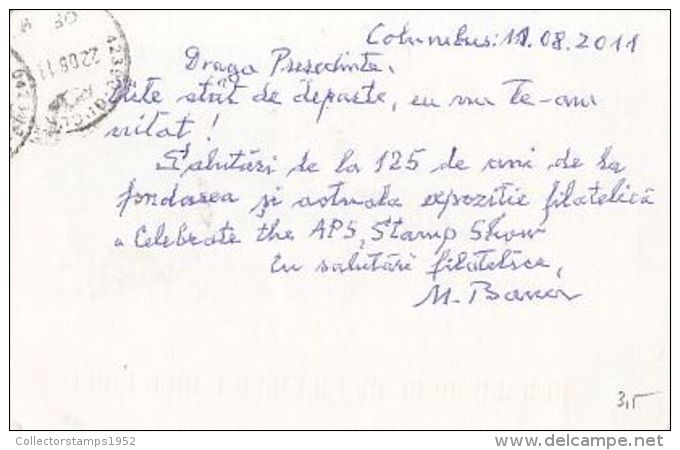 Columbus: 11.08.2011
Draga Președinte,
Uite atât de departe, eu nu te-am
uitat!
Salutări de la 125 de ani de la
fondarea și actuala expoziție filatelică
a Celebrate the APS, Stamp Show
Cu salutări filatelice,
M.
22.08.11
3,5
Collectorstamps1952
www.delcampe.net